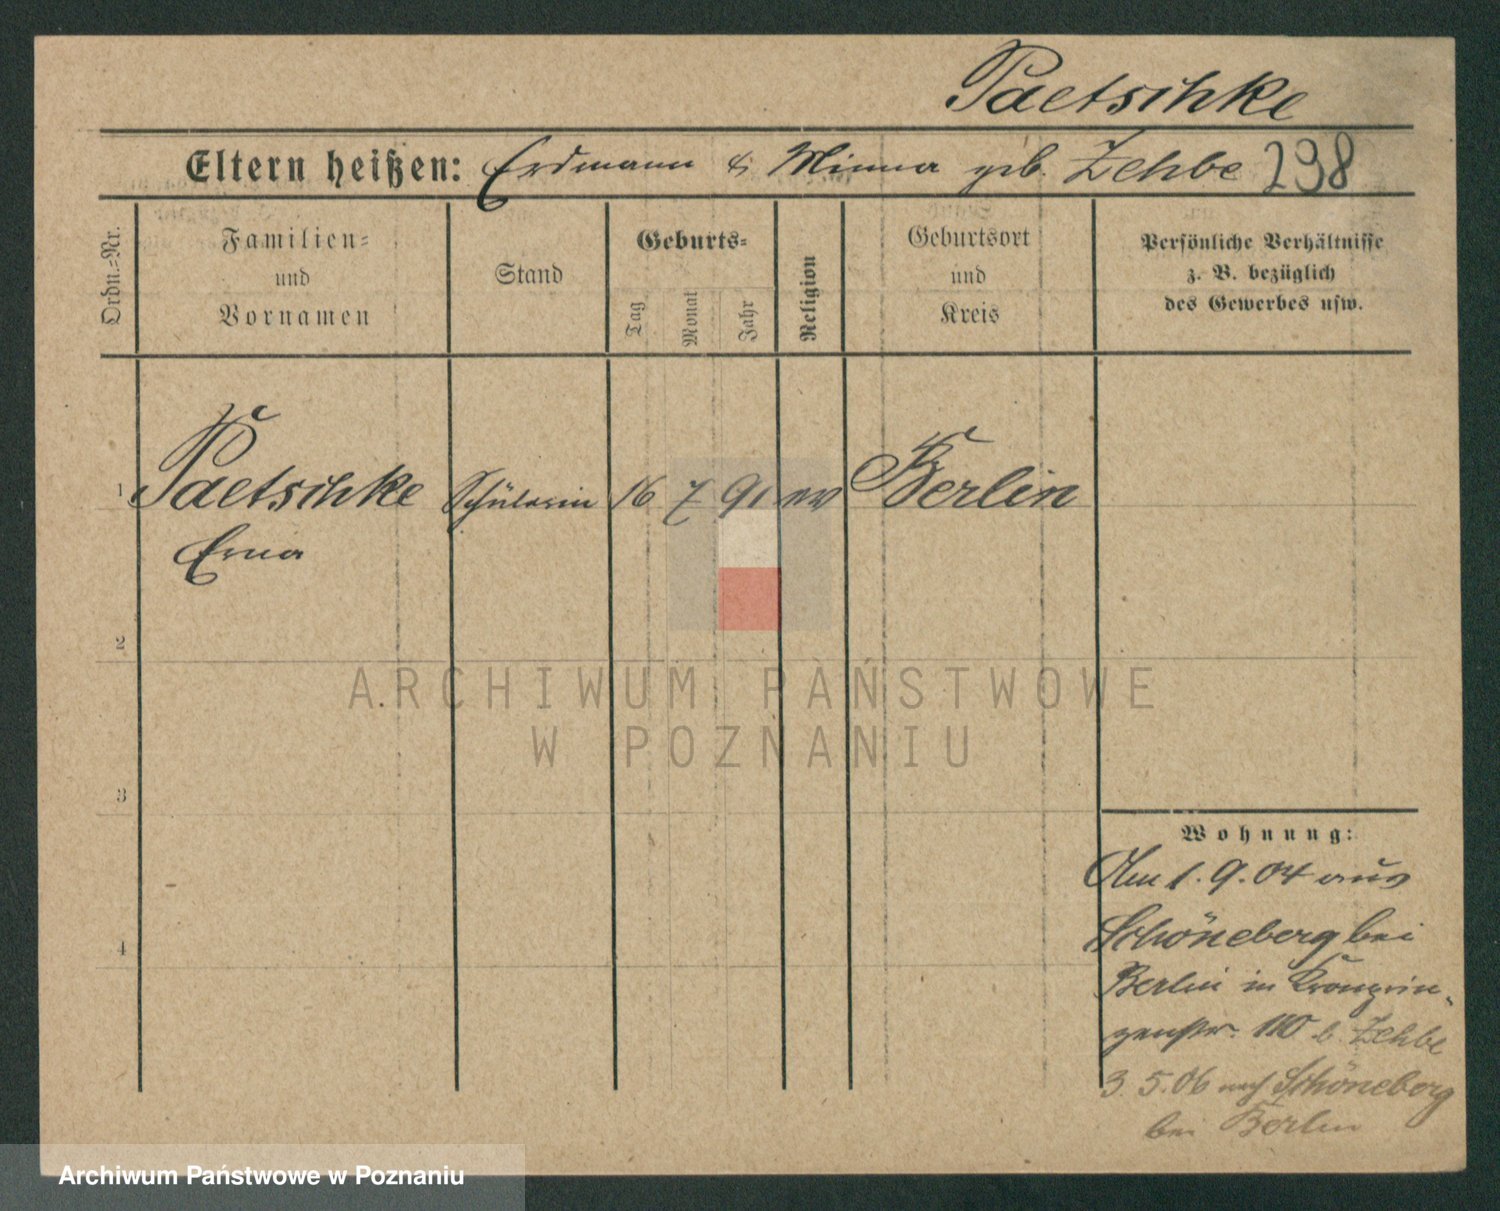 Paetschke
Eltern heißen: Erdmann & Minna geb. Zehbe 298
Ordn.=Nr.
Familien=
und
Vornamen
Stand
Geburts=
Tag
Monat
Jahr
Religion
Geburtsort
und
Kreis
Persönliche Verhältnisse
z. B. bezüglich
des Gewerbes usw.
1 Paetschke Schülerin 16 7 91 ev Berlin
Erna
2
3
4
Wohnung:
Am 1. 9. 04 aus
Schöneberg bei
Berlin in Kronprin-
zenstr. 110 b Zehbe
3. 5. 06 nach Schöneberg
bei Berlin
ARCHIWUM PAŃSTWOWE
W POZNANIU
Archiwum Państwowe w Poznaniu